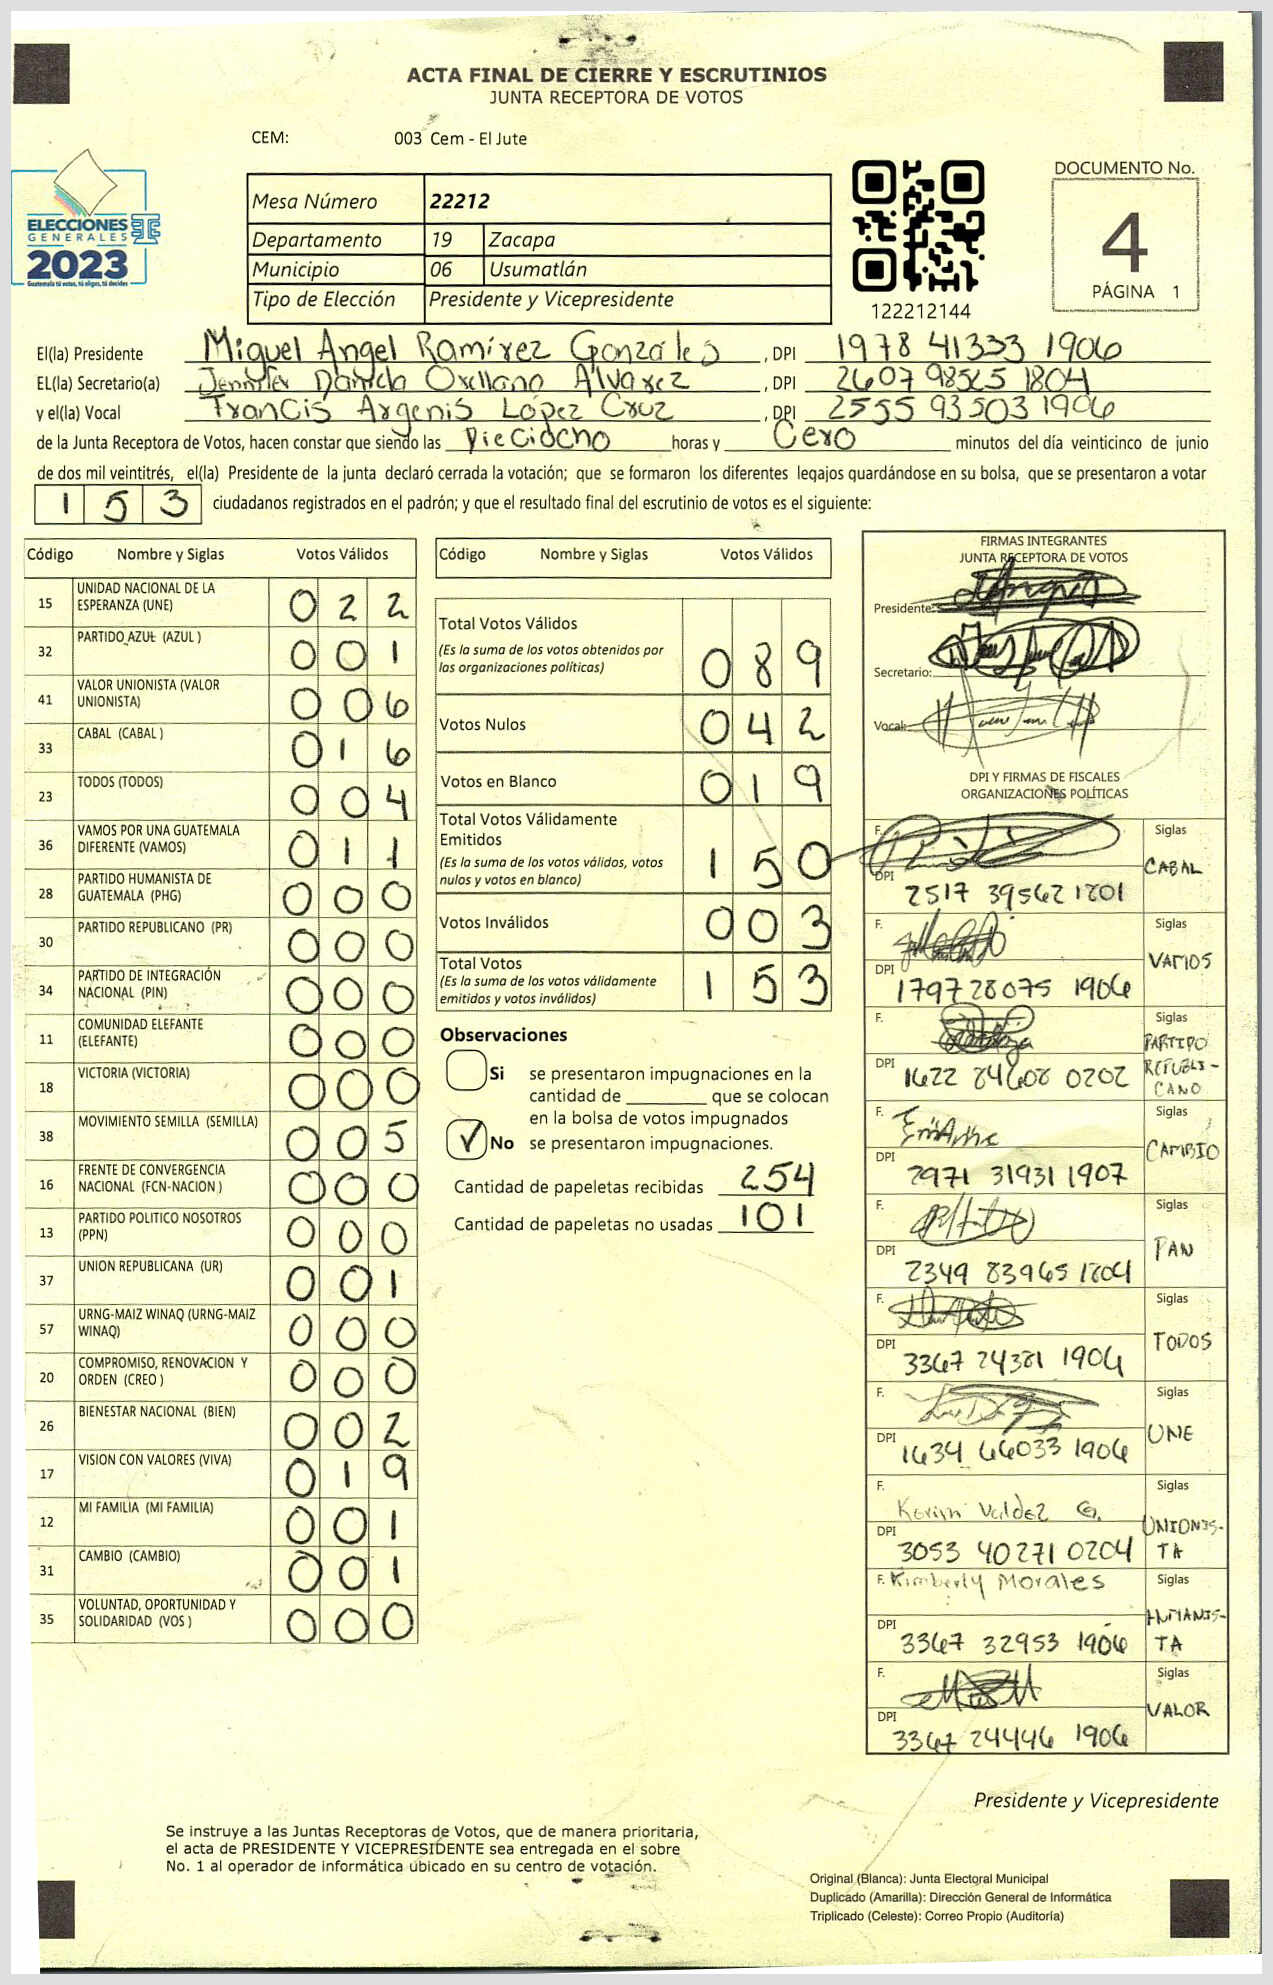 ACTA FINAL DE CIERRE Y ESCRUTINIOS
JUNTA RECEPTORA DE VOTOS
CEM: 003 Cem - El Jute
ELECCIONES
GENERALES
2023
Guatemala tú votas, tú eliges, tú decides
Mesa Número 22212
Departamento 19 Zacapa
Municipio 06 Usumatlán
Tipo de Elección Presidente y Vicepresidente
122212144
DOCUMENTO No.
4
PÁGINA 1
El(la) Presidente Miguel Angel Ramírez Gonzáles, DPI 1978 41333 1906
EL(la) Secretario(a) Jennifer Daniela Orellano Alvarez, DPI 2607 98565 1804
y el(la) Vocal Francis Argenis López Cruz, DPI 2555 93503 1906
de la Junta Receptora de Votos, hacen constar que siendo las Dieciocho horas y Cero minutos del día veinticinco de junio
de dos mil veintitrés, el(la) Presidente de la junta declaró cerrada la votación; que se formaron los diferentes legajos quardándose en su bolsa, que se presentaron a votar
153 ciudadanos registrados en el padrón; y que el resultado final del escrutinio de votos es el siguiente:
Código Nombre y Siglas Votos Válidos
15 UNIDAD NACIONAL DE LA ESPERANZA (UNE) 022
32 PARTIDO AZUL (AZUL ) 001
41 VALOR UNIONISTA (VALOR UNIONISTA) 006
33 CABAL (CABAL ) 016
23 TODOS (TODOS) 004
36 VAMOS POR UNA GUATEMALA DIFERENTE (VAMOS) 011
28 PARTIDO HUMANISTA DE GUATEMALA (PHG) 000
30 PARTIDO REPUBLICANO (PR) 000
34 PARTIDO DE INTEGRACIÓN NACIONAL (PIN) 000
11 COMUNIDAD ELEFANTE (ELEFANTE) 000
18 VICTORIA (VICTORIA) 000
38 MOVIMIENTO SEMILLA (SEMILLA) 005
16 FRENTE DE CONVERGENCIA NACIONAL (FCN-NACION ) 000
13 PARTIDO POLITICO NOSOTROS (PPN) 000
37 UNION REPUBLICANA (UR) 001
57 URNG-MAIZ WINAQ (URNG-MAIZ WINAQ) 000
20 COMPROMISO, RENOVACION Y ORDEN (CREO ) 000
26 BIENESTAR NACIONAL (BIEN) 002
17 VISION CON VALORES (VIVA) 019
12 MI FAMILIA (MI FAMILIA) 001
31 CAMBIO (CAMBIO) 001
35 VOLUNTAD, OPORTUNIDAD Y SOLIDARIDAD (VOS ) 000
Código Nombre y Siglas Votos Válidos
Total Votos Válidos 089
(Es la suma de los votos obtenidos por
las organizaciones políticas)
Votos Nulos 042
Votos en Blanco 019
Total Votos Válidamente
Emitidos 150
(Es la suma de los votos válidos, votos
nulos y votos en blanco)
Votos Inválidos 003
Total Votos 153
(Es la suma de los votos válidamente
emitidos y votos inválidos)
Observaciones
Si se presentaron impugnaciones en la
cantidad de ________ que se colocan
en la bolsa de votos impugnados
✓ No se presentaron impugnaciones.
Cantidad de papeletas recibidas 254
Cantidad de papeletas no usadas 101
FIRMAS INTEGRANTES
JUNTA RECEPTORA DE VOTOS
Presidente:
Secretario:
Vocal:
DPI Y FIRMAS DE FISCALES
ORGANIZACIONES POLÍTICAS
F. Siglas CABAL
DPI 2517 39562 1801
F. Siglas VAMOS
DPI 1797 28075 1906
F. Siglas PARTIDO REPUBLI-CANO
DPI 1622 84608 0202
F. Siglas CAMBIO
DPI 2971 31931 1907
F. Siglas PAN
DPI 2349 83965 1804
F. Siglas TODOS
DPI 3367 24381 1906
F. Siglas UNE
DPI 1634 66033 1906
F. Kerim Valdez G. Siglas UNIONIS-TA
DPI 3053 40271 0204
F. Kimberly Morales Siglas HUMANIS-TA
DPI 3367 32953 1906
F. Siglas VALOR
DPI 3367 24446 1906
Presidente y Vicepresidente
Se instruye a las Juntas Receptoras de Votos, que de manera prioritaria,
el acta de PRESIDENTE Y VICEPRESIDENTE sea entregada en el sobre
No. 1 al operador de informática ubicado en su centro de votación.
Original (Blanca): Junta Electoral Municipal
Duplicado (Amarilla): Dirección General de Informática
Triplicado (Celeste): Correo Propio (Auditoría)